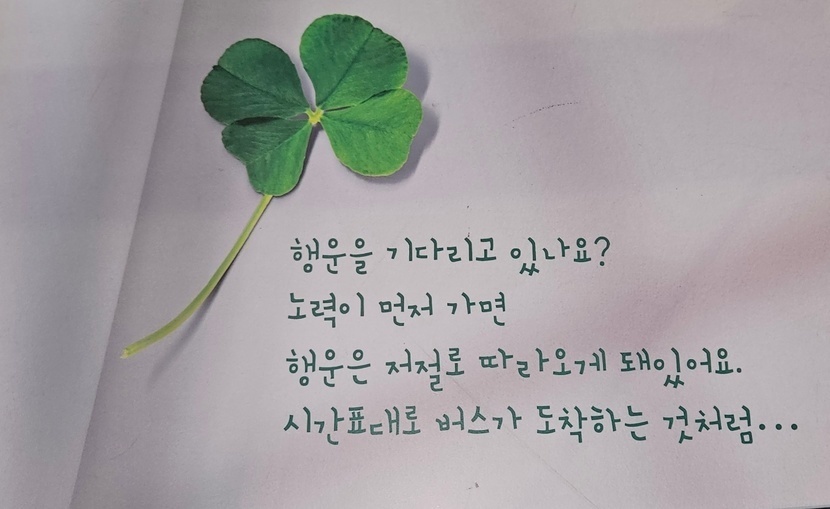 행운을 기다리고 있나요?
노력이 먼저 가면
행운은 저절로 따라오게 돼있어요.
시간표대로 버스가 도착하는 것처럼...